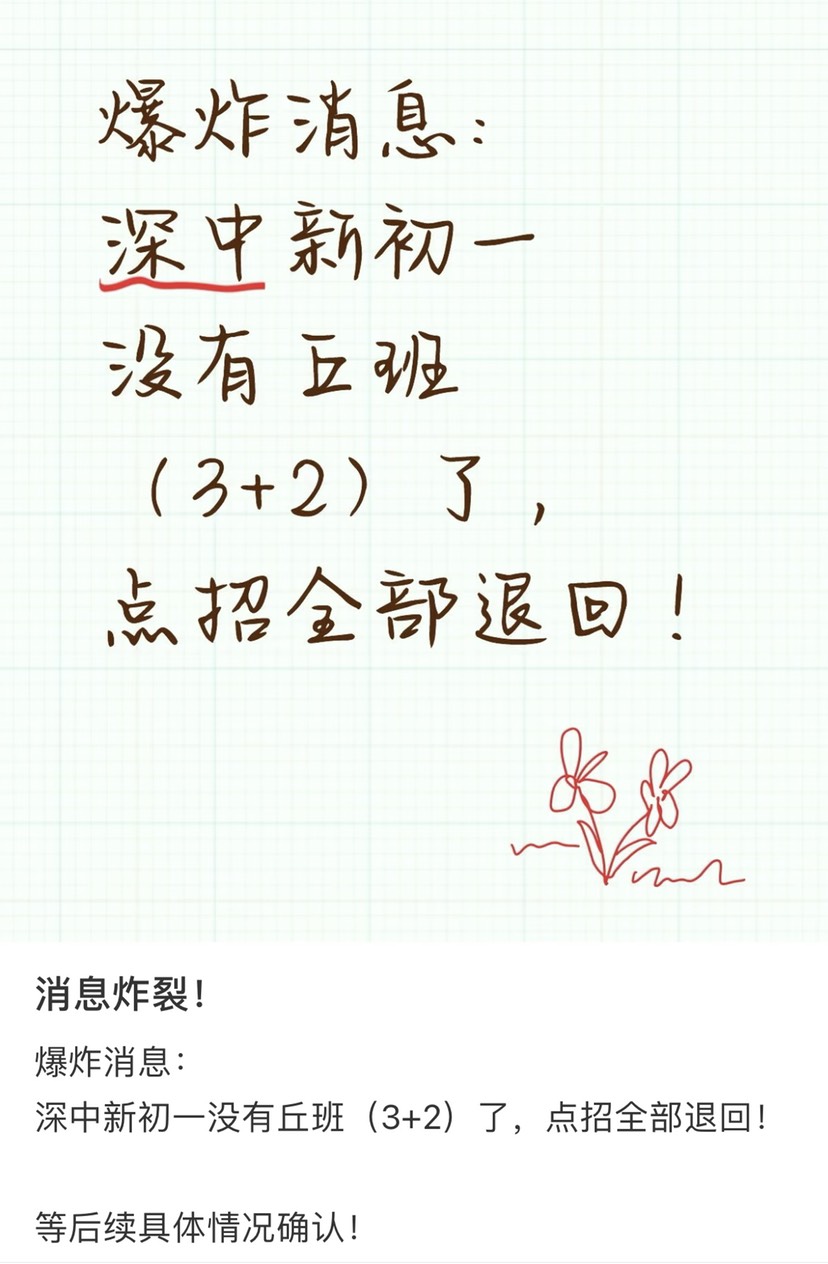 爆炸消息：
深中新初一
没有丘班
（3+2）了，
点招全部退回！
消息炸裂！
爆炸消息：
深中新初一没有丘班（3+2）了，点招全部退回！
等后续具体情况确认！